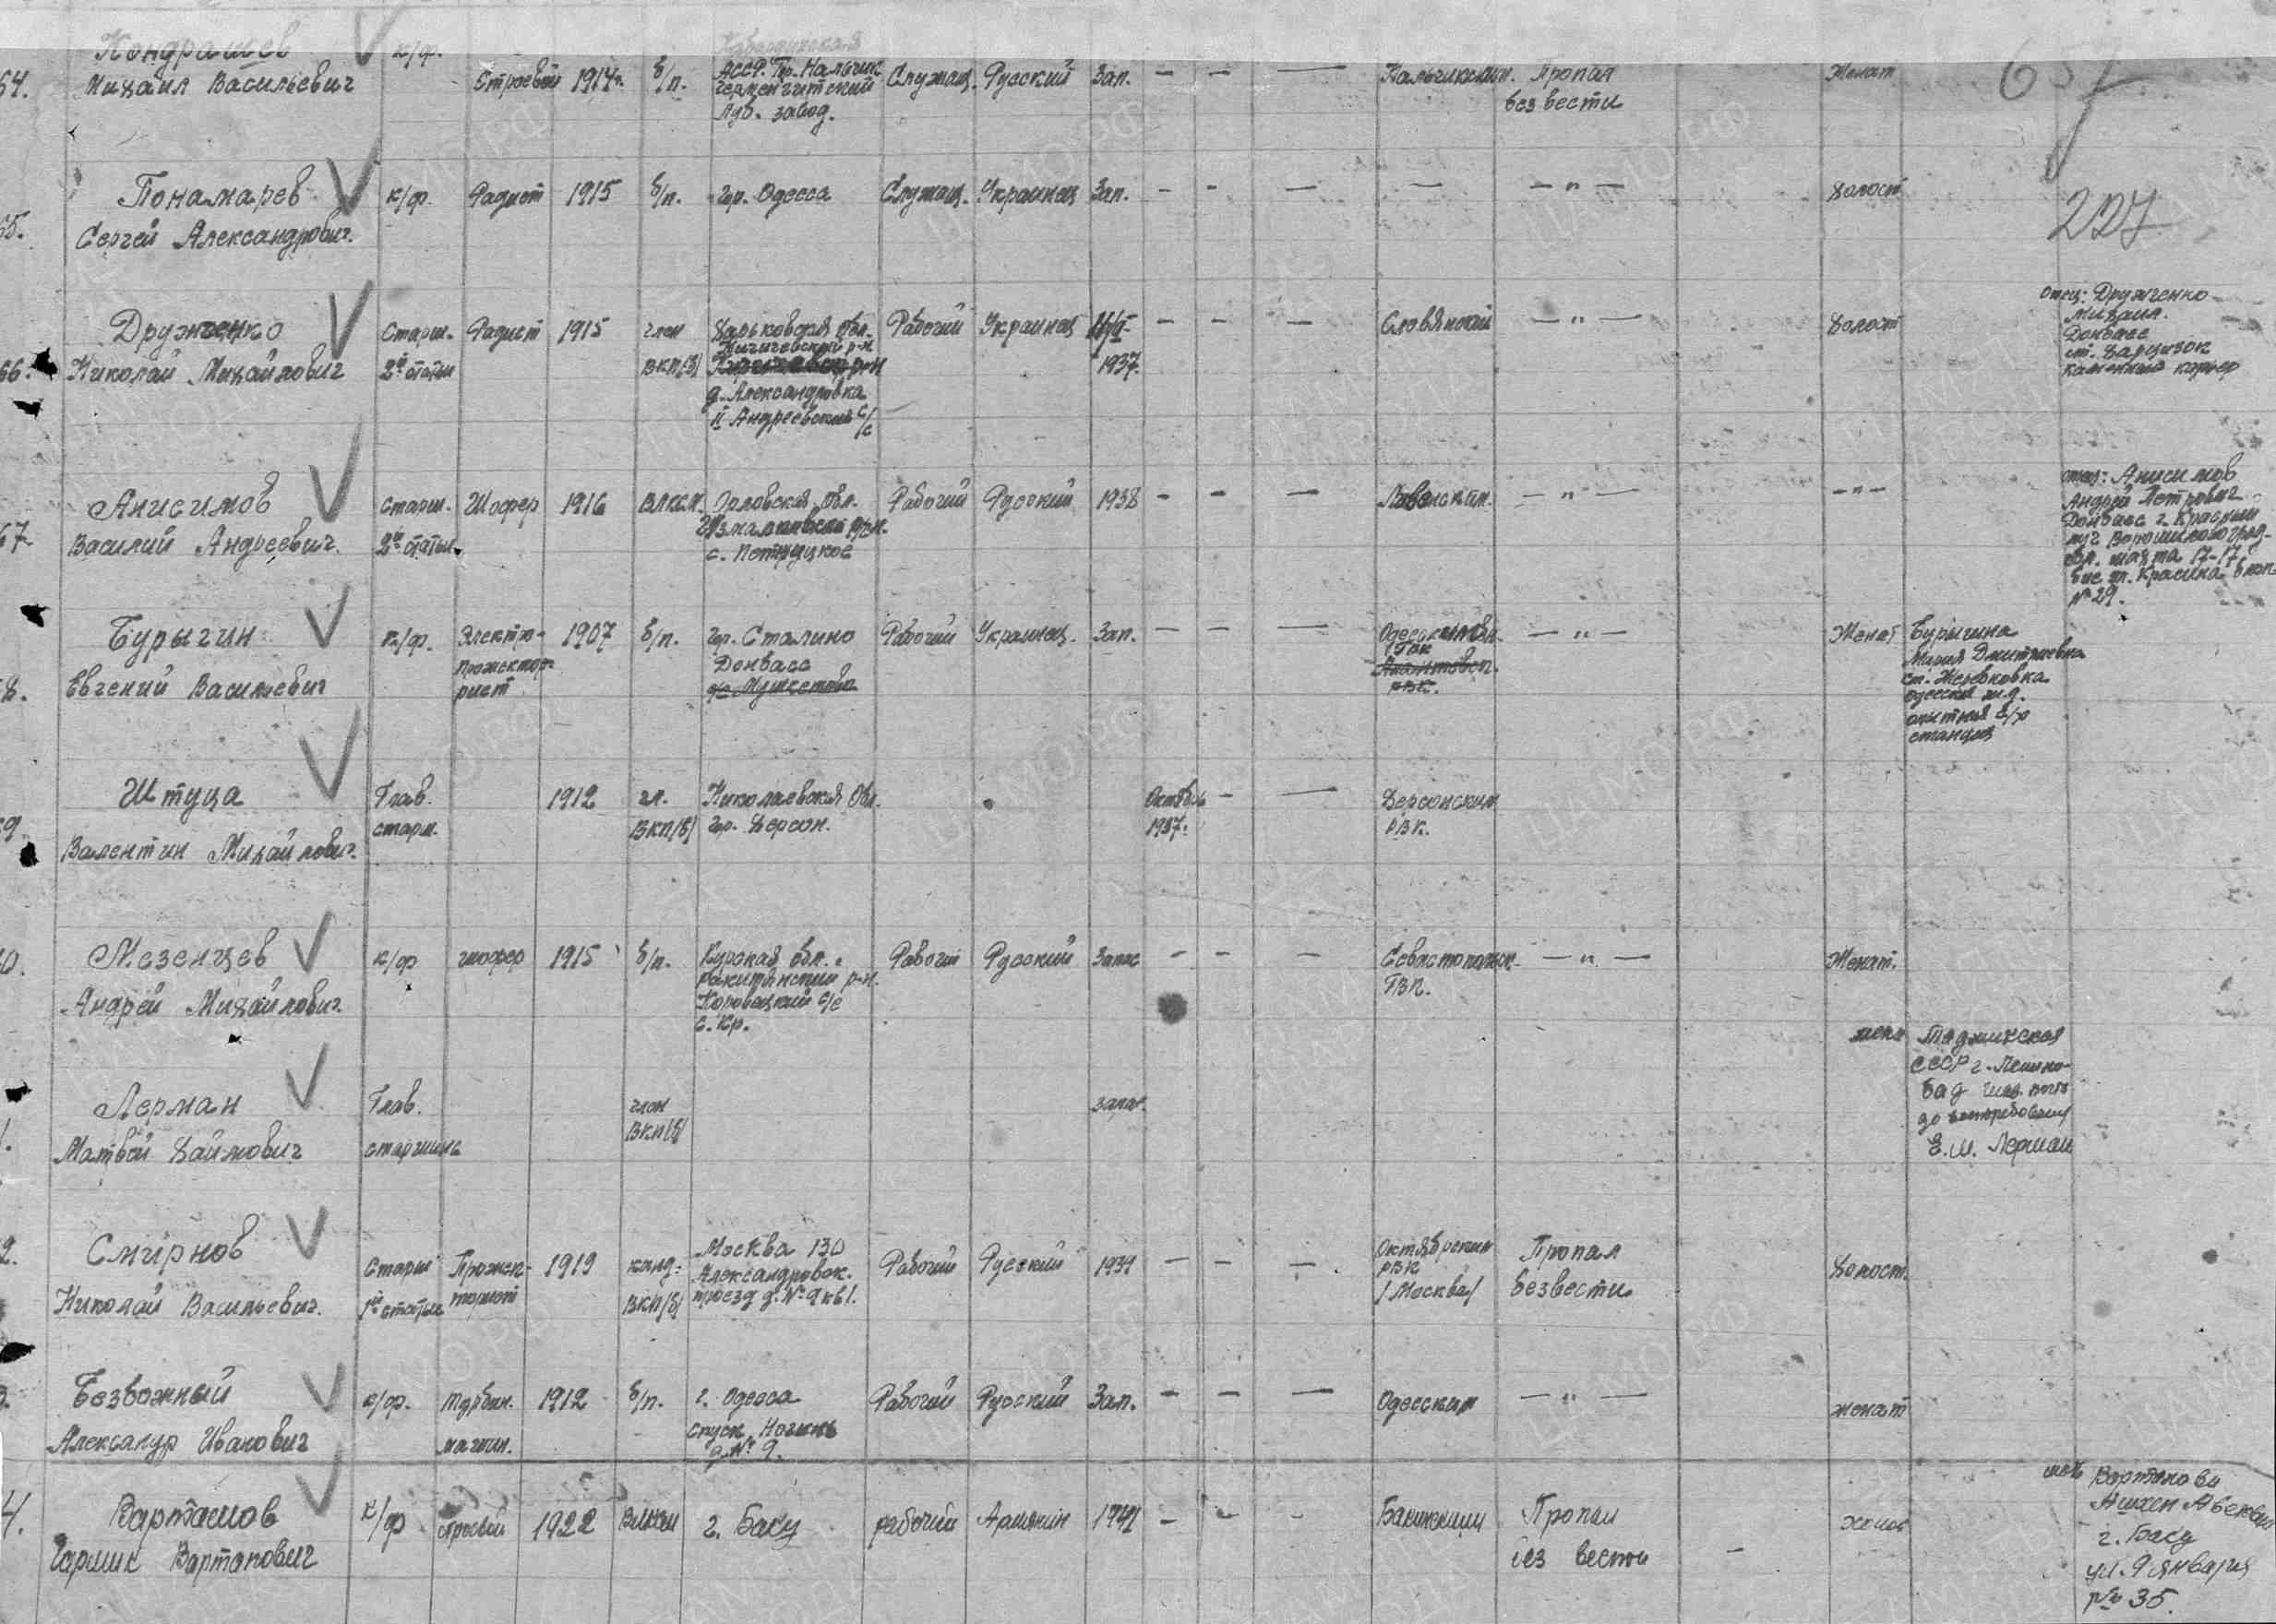 Кондрашев
к/ф.
Кабардинская
64. Михаил Васильевич
Строевой 1914г. б/п.
АССР. Гр. Нальчик
Лув. завод.
Служащ. Русский Зап. — — —
Пропал
без вести
Женат
657
65. Понамарев
Сергей Александрович.
к/ф. Радист 1915 б/п. Гр. Одесса Служащ. Украинец Зап. — — — — —"— Холост
227
66. Дружченко
Николай Михайлович
Старш.
2й статьи
Радист 1915
член
ВКП(б)
Харьковская Обл.
д. Александровка
II Андреевский с/с
Рабочий Украинец
1937.
— — —
Славянский —"— Холост
Отец: Дружченко
Михаил.
Донбасс
ст. Харцизск
каменный карьер
67. Анисимов
Василий Андреевич.
Старш.
2й статьи
Шофер 1916 ВЛКСМ.
Орловская Обл.
Измалковский р-н.
Рабочий Русский 1938 — — —
—"— —"—
отец: Анисимов
Андрей Петрович
Донбасс г. Красный
луч Ворошиловоград-
обл. шахта 17-17
№ 29.
68. Бурыгин
Евгений Васильевич
к/ф.
Электро-
прожекто-
рист
1907 б/п.
Гр. Сталино
Донбасс
Рабочий Украинец. Зап. — — —
—"— Женат
Бурыгина
Мария Дмитриевна
ст. Жеребковка
Одесская ж.д.
опытная с/х
станция
69. Штуца
Валентин Михайлович.
Глав.
старш.
1912
чл.
ВКП/б/
Николаевская Обл.
Гр. Херсон.
Октябрь
1937.
— —
Херсонский
РВК.
70. Мезенцев
Андрей Михайлович.
к/ф шофер 1915 б/п.
Курская обл.
Ракитянский р-н.
с. Кр.
Рабочий Русский Запас — — —
Севастопольск.
ГВК.
—"— Женат.
71. Лерман
Матвей Хаймович
Глав.
старшина
член
ВКП/б/
запас.
жена
Таджикская
ССР г. Ленина-
бад
до востребования
Е. М. Лерман
72. Смирнов
Николай Васильевич.
Старш
1й статьи
Прожек-
торист
1919
канд.
ВКП/б/
Москва 130
Александровск.
проезд д. № 9 кв 1.
Рабочий Русский 1939 — — —
Октябрьским
РВК
/Москва/
Пропал
без вести
Холост.
73. Безвожный
Александр Иванович
к/ф.
Турбин.
машин.
1912 б/п.
г. Одесса
спуск Ногина
д. № 9.
Рабочий Русский Зап. — — —
Одесским —"— женат
74. Вартанов
Гармик Вартанович
к/ф строевой 1922 ВЛКСМ г. Баку рабочий Армянин 1941 — — —
Бакинским
Пропал
без вести
—
холост
мать Вартанова
г. Баку
ул. 9 января
№ 35